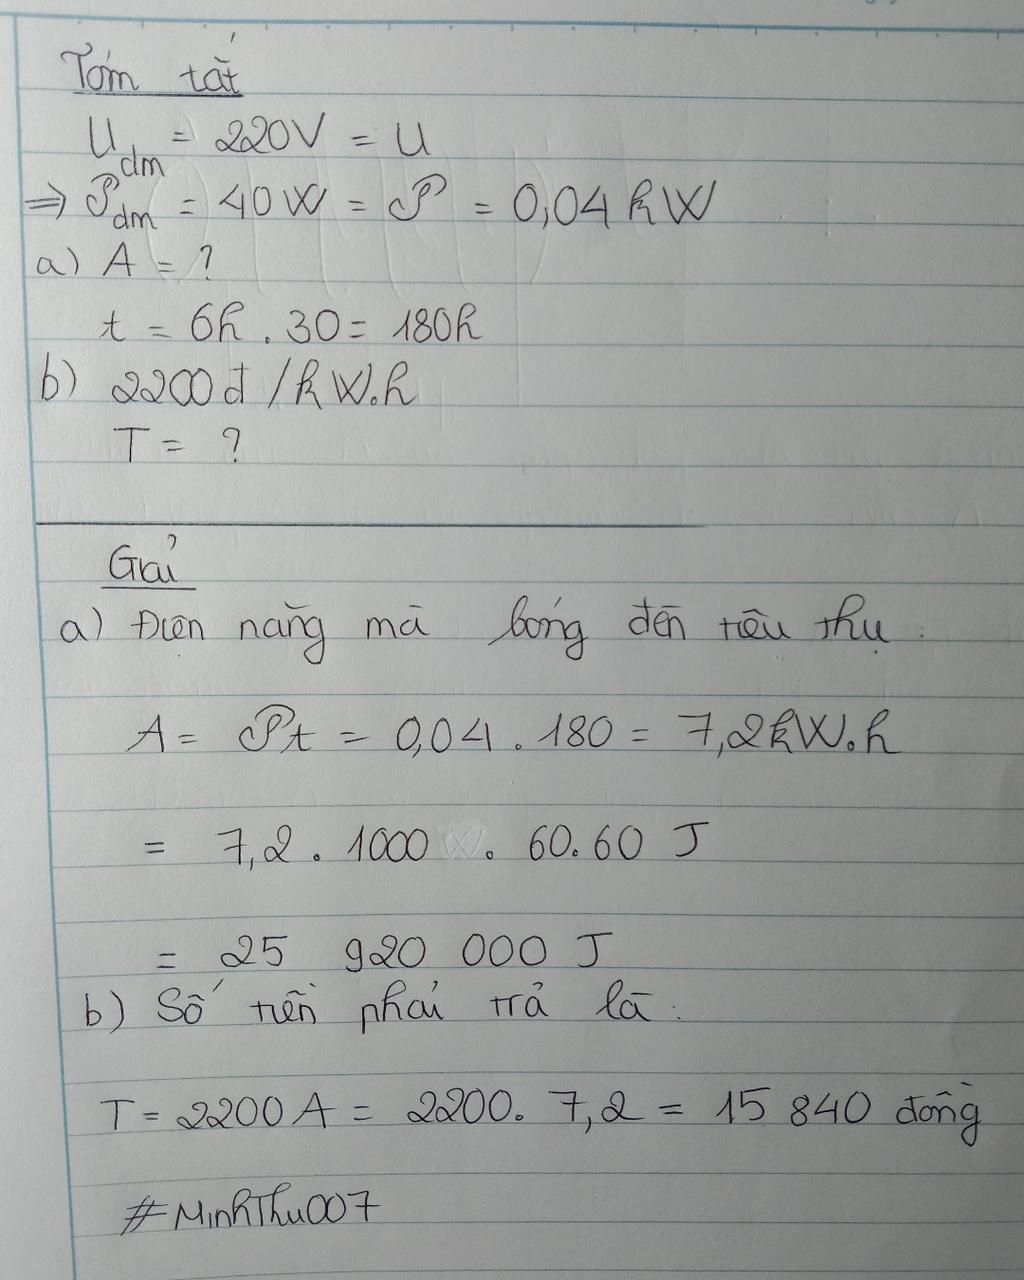 Tóm tắt
Uđm = 220V = U
=> 𝒫đm = 40W = 𝒫 = 0,04 kW
a) A = ?
t = 6h . 30 = 180h
b) 2200đ /kW.h
T = ?
Giải
a) Điện năng mà bóng đèn tiêu thụ :
A = 𝒫t = 0,04 . 180 = 7,2kW.h
= 7,2 . 1000 . 60.60 J
= 25 920 000 J
b) Số tiền phải trả là :
T = 2200 A = 2200. 7,2 = 15 840 đồng
#MinhThu007